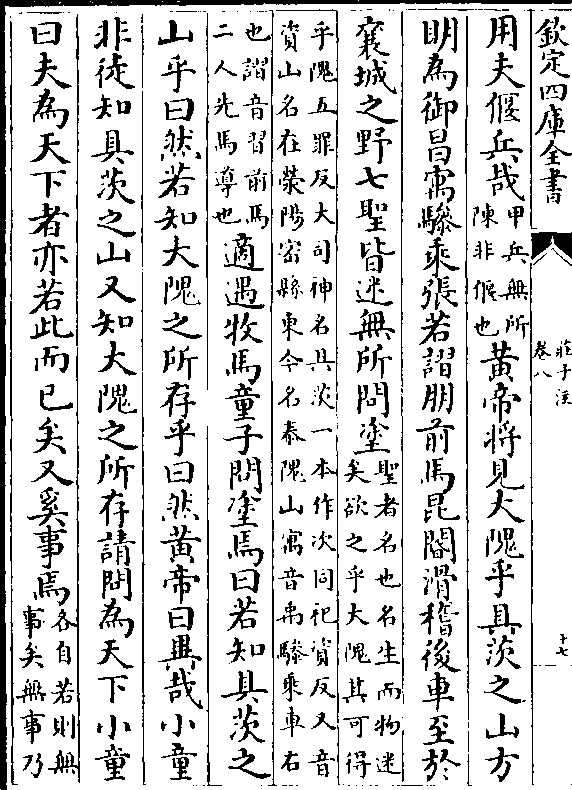 欽定四庫全書
莊子注
卷八
十七
用夫偃兵哉甲兵無所陳非偃也黄帝將見大隗乎具茨之山方
明為御昌㝢驂乘張若謵朋前馬昆閽滑稽後車至於
襄城之野七聖皆迷無所問塗聖者名也名生而物迷矣欲之乎大隗其可得
乎隗五罪反大司神名具茨一本作次同祀資反又音
資山名在滎陽密縣東今名泰隗山㝢音禹驂乘車右
也謵音習前馬二人先馬導也適遇牧馬童子問塗焉曰若知具茨之
山乎曰然若知大隗之所存乎曰然黄帝曰異哉小童
非徒知具茨之山又知大隗之所存請問為天下小童
曰夫為天下者亦若此而已矣又奚事焉各自若則無事矣無事乃